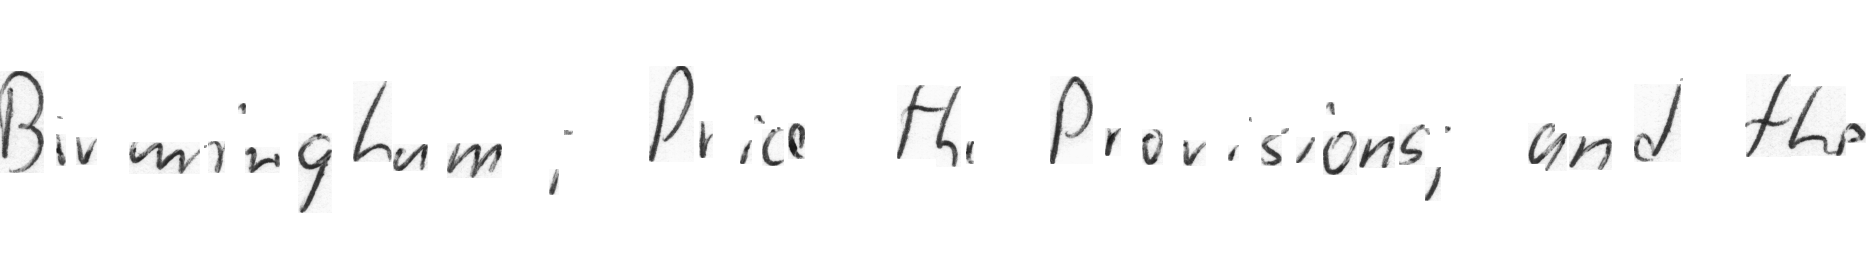 Birmingham; Price the Provisions; and the